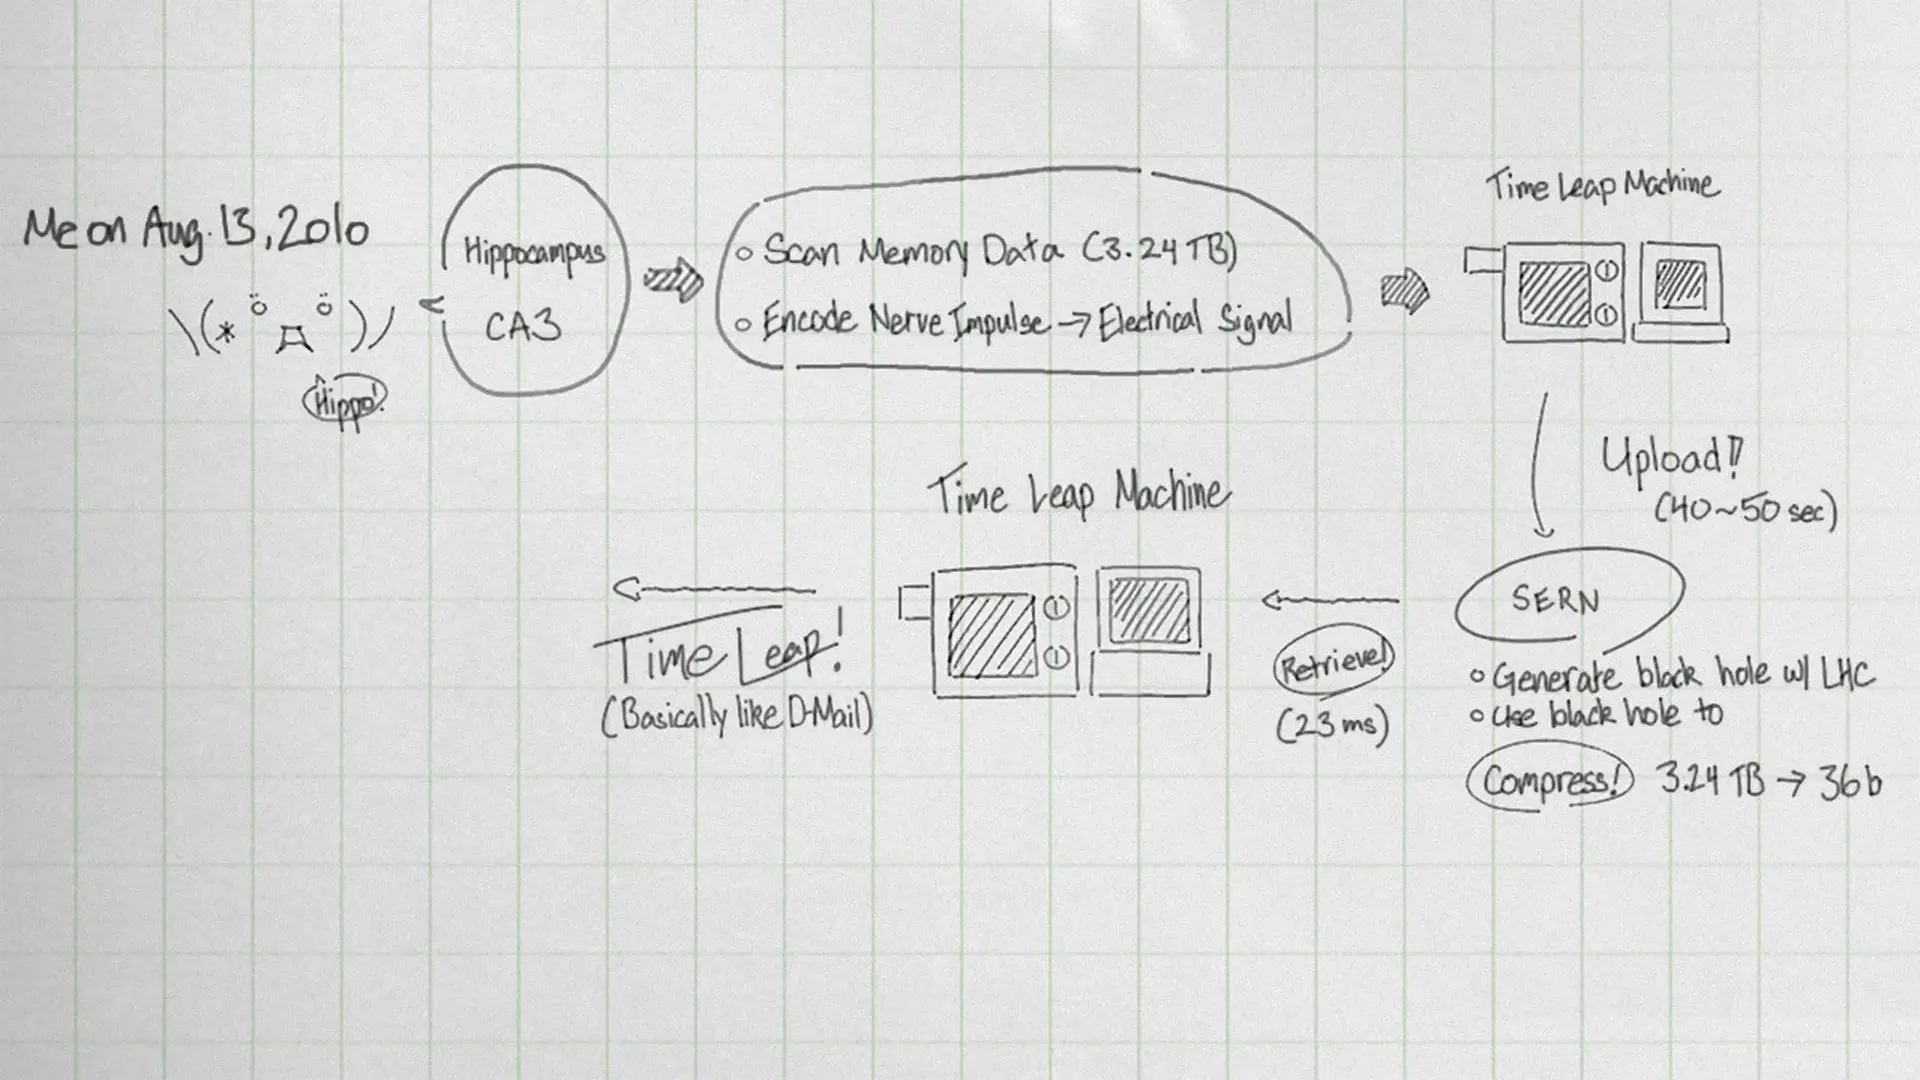 Me on Aug. 13, 2010
\(* ö д ö )/
Hippo!
Hippocampus
CA3
Scan Memory Data (3.24 TB)
Encode Nerve Impulse → Electrical Signal
Time Leap Machine
Upload!!
(40~50 sec)
SERN
Generate black hole w/ LHC
Use black hole to
Compress! 3.24 TB → 36b
Retrieve!
(23 ms)
Time Leap Machine
Time Leap!
(Basically like D-Mail)